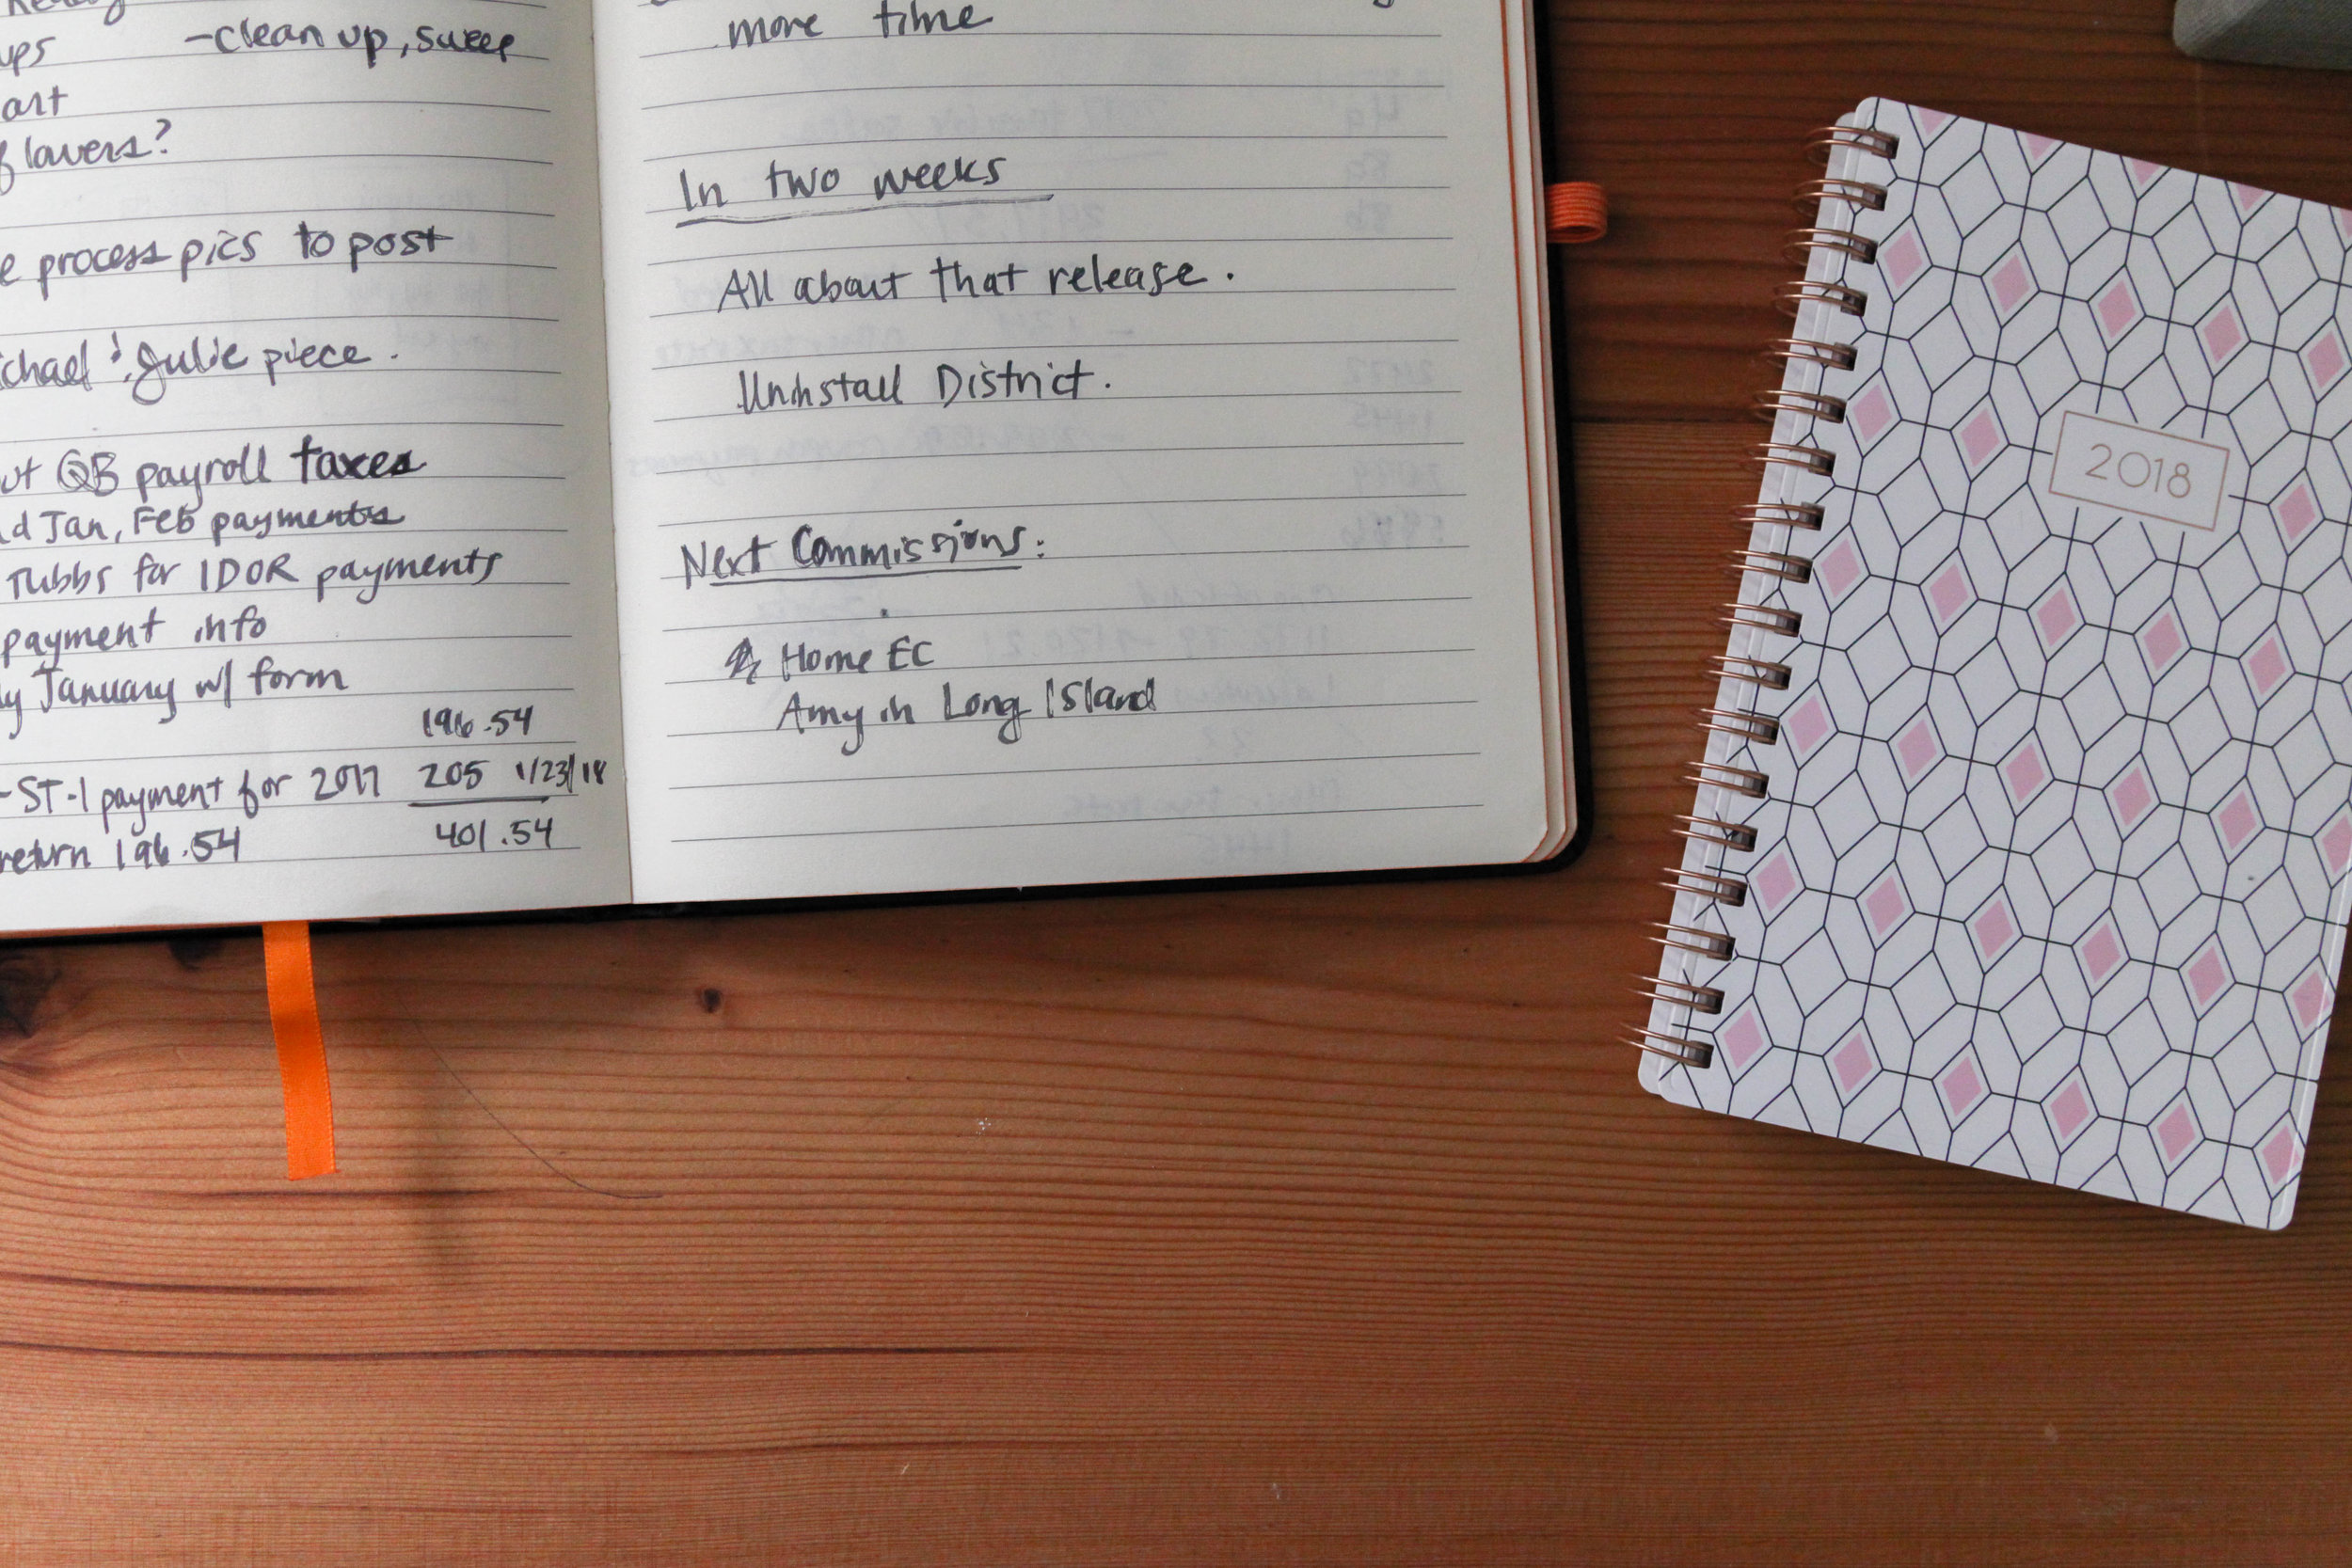 ups -clean up, sweep
art
flavers?
e process pics to post
chael & Julie piece.
ut QB payroll taxes
d Jan, Feb payments
Tubbs for IDOR payments
payment info
y January w/ form
196.54
-ST-1 payment for 2017 205 1/23/18
return 196.54 401.54
more time
In two weeks
All about that release.
Uninstall District.
Next Commissions:
Home EC
Amy in Long Island
2018